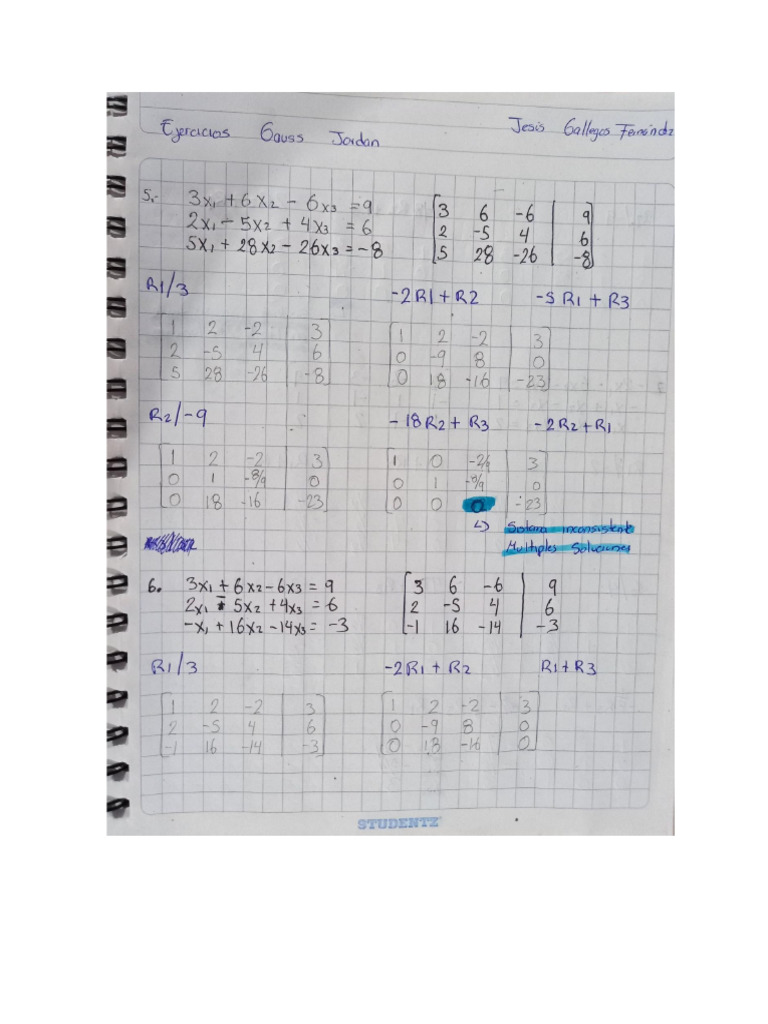 Ejercicios Gauss Jordan Jesús Gallegos Fernández
5. 3x₁ + 6x₂ - 6x₃ = 9
2x₁ - 5x₂ + 4x₃ = 6
5x₁ + 28x₂ - 26x₃ = -8
3 6 -6 | 9
2 -5 4 | 6
5 28 -26 | -8
R1/3
-2R1 + R2 -5 R1 + R3
1 2 -2 | 3
2 -5 4 | 6
5 28 -26 | -8
1 2 -2 | 3
0 -9 8 | 0
0 18 -16 | -23
R2/-9
-18R2 + R3 -2R2 + R1
1 2 -2 | 3
0 1 -8/9 | 0
0 18 -16 | -23
1 0 -2/9 | 3
0 1 -8/9 | 0
0 0 0 | -23
↳ Sistema inconsistente
Multiples Soluciones
6. 3x₁ + 6x₂ - 6x₃ = 9
2x₁ - 5x₂ + 4x₃ = 6
-x₁ + 16x₂ - 14x₃ = -3
3 6 -6 | 9
2 -5 4 | 6
-1 16 -14 | -3
R1/3
-2R1 + R2 R1 + R3
1 2 -2 | 3
2 -5 4 | 6
-1 16 -14 | -3
1 2 -2 | 3
0 -9 8 | 0
0 18 -16 | 0
STUDENTZ